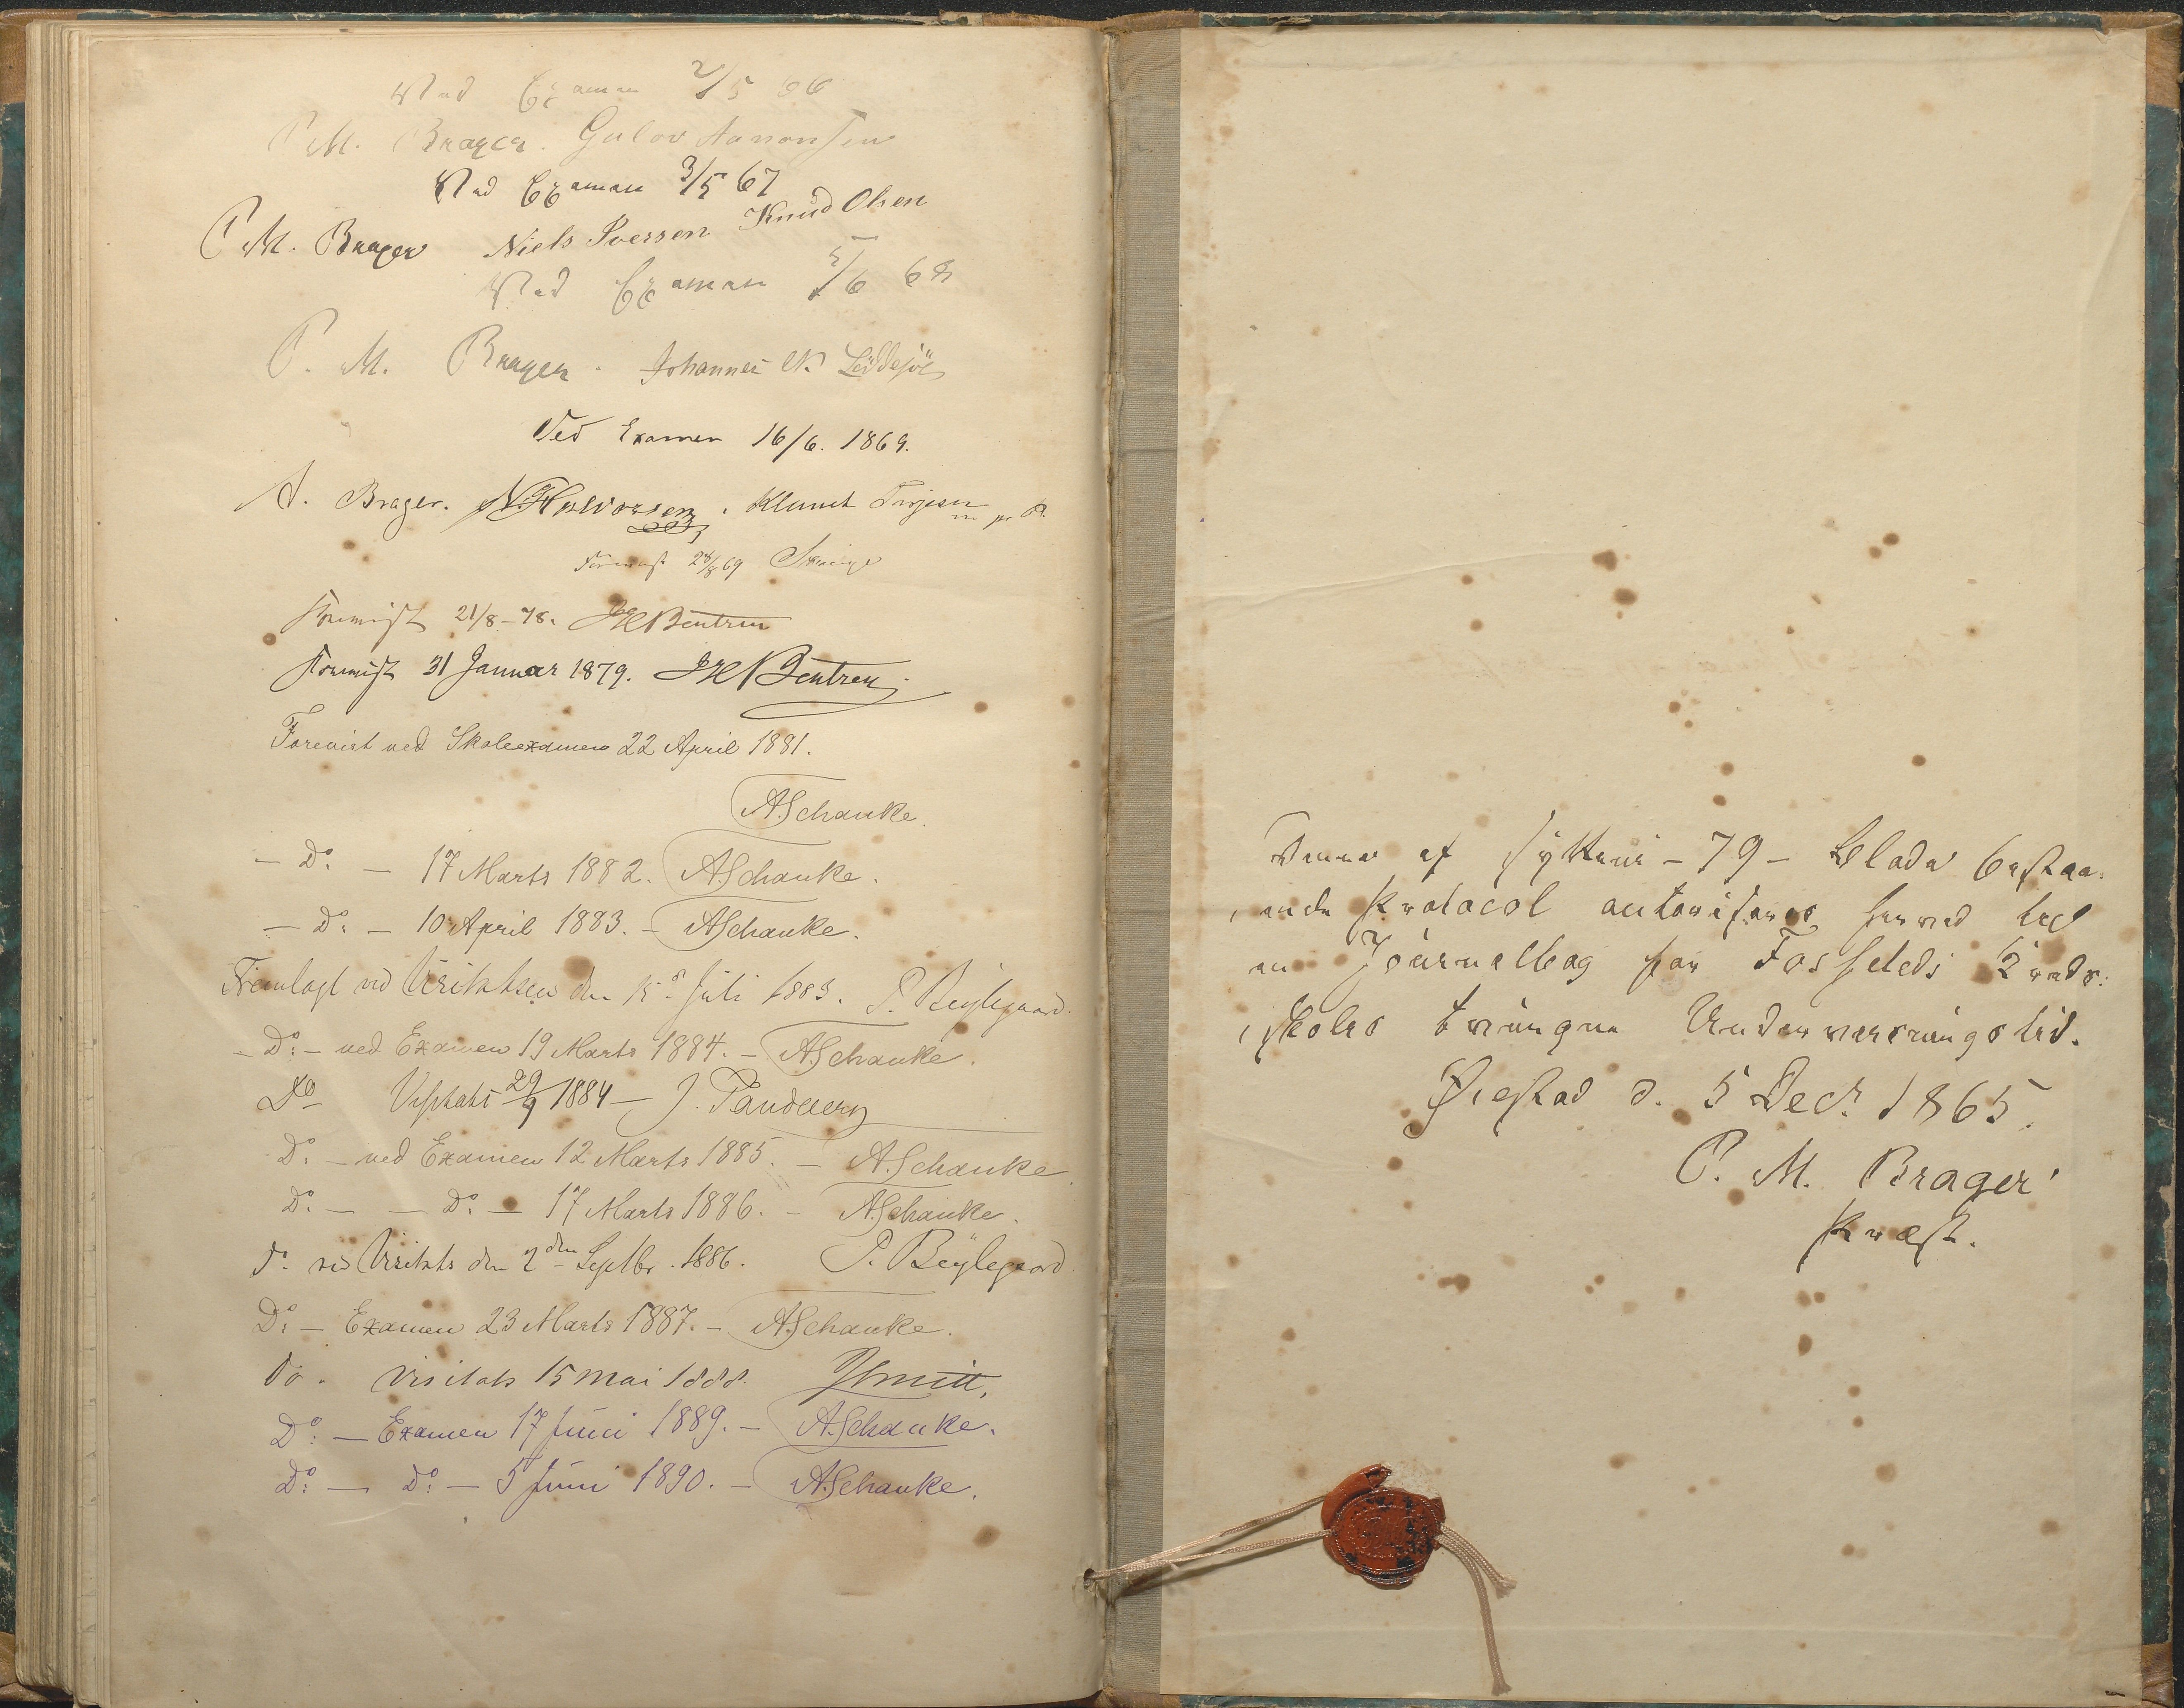 Ved Examen 2/5 66
P. M. Brager. Gulov Aanonsen
Ved Examen 3/5 67
P. M. Brager Niels Iversen Knud Olsen
Ved Examen 5/6 68
P. M. Brager. Johannes N.
Ved Examen 16/6. 1869.
A. Brager. N. Halvorsen. Klemet Terjesen
Forevist 24/8 69
Forevist 21/8-78. JH Bentzen
Forevist 31 Januar 1879. JH Bentzen
Forevist ved Skoleexamen 22 April 1881.
A. Schanke.
— Do: — 17 Marts 1882. A. Schanke.
— Do: — 10 April 1883. — A. Schanke.
Fremlagt ved Visitatsen den 15de Juli 1883. P. Bøylegaard.
— Do: — ved Examen 19 Marts 1884. — A. Schanke.
Do Visitats 29/9 1884 — J. Sandberg
Do: — ved Examen 12 Marts 1885. — A. Schanke.
Do: — — Do: — 17 Marts 1886. — A. Schanke.
Do. ved Visitats den 2den Septbr. 1886. P. Bøylegaard.
Do: — Examen 23 Marts 1887. — A. Schanke.
Do. Visitats 15 Mai 1888.
Do: — Examen 17 Juni 1889. — A. Schanke.
Do: — Do: — 5 Juni 1890. — A. Schanke.
Denne af syttini — 79 — Blade bestaa-
ende Protocol autoriseres herved til
en Journalbog for Fosseleds Kreds-
skoles tvungne Undervisningstid.
Øiestad d. 5 Decr 1865.
P. M. Brager
Præst.